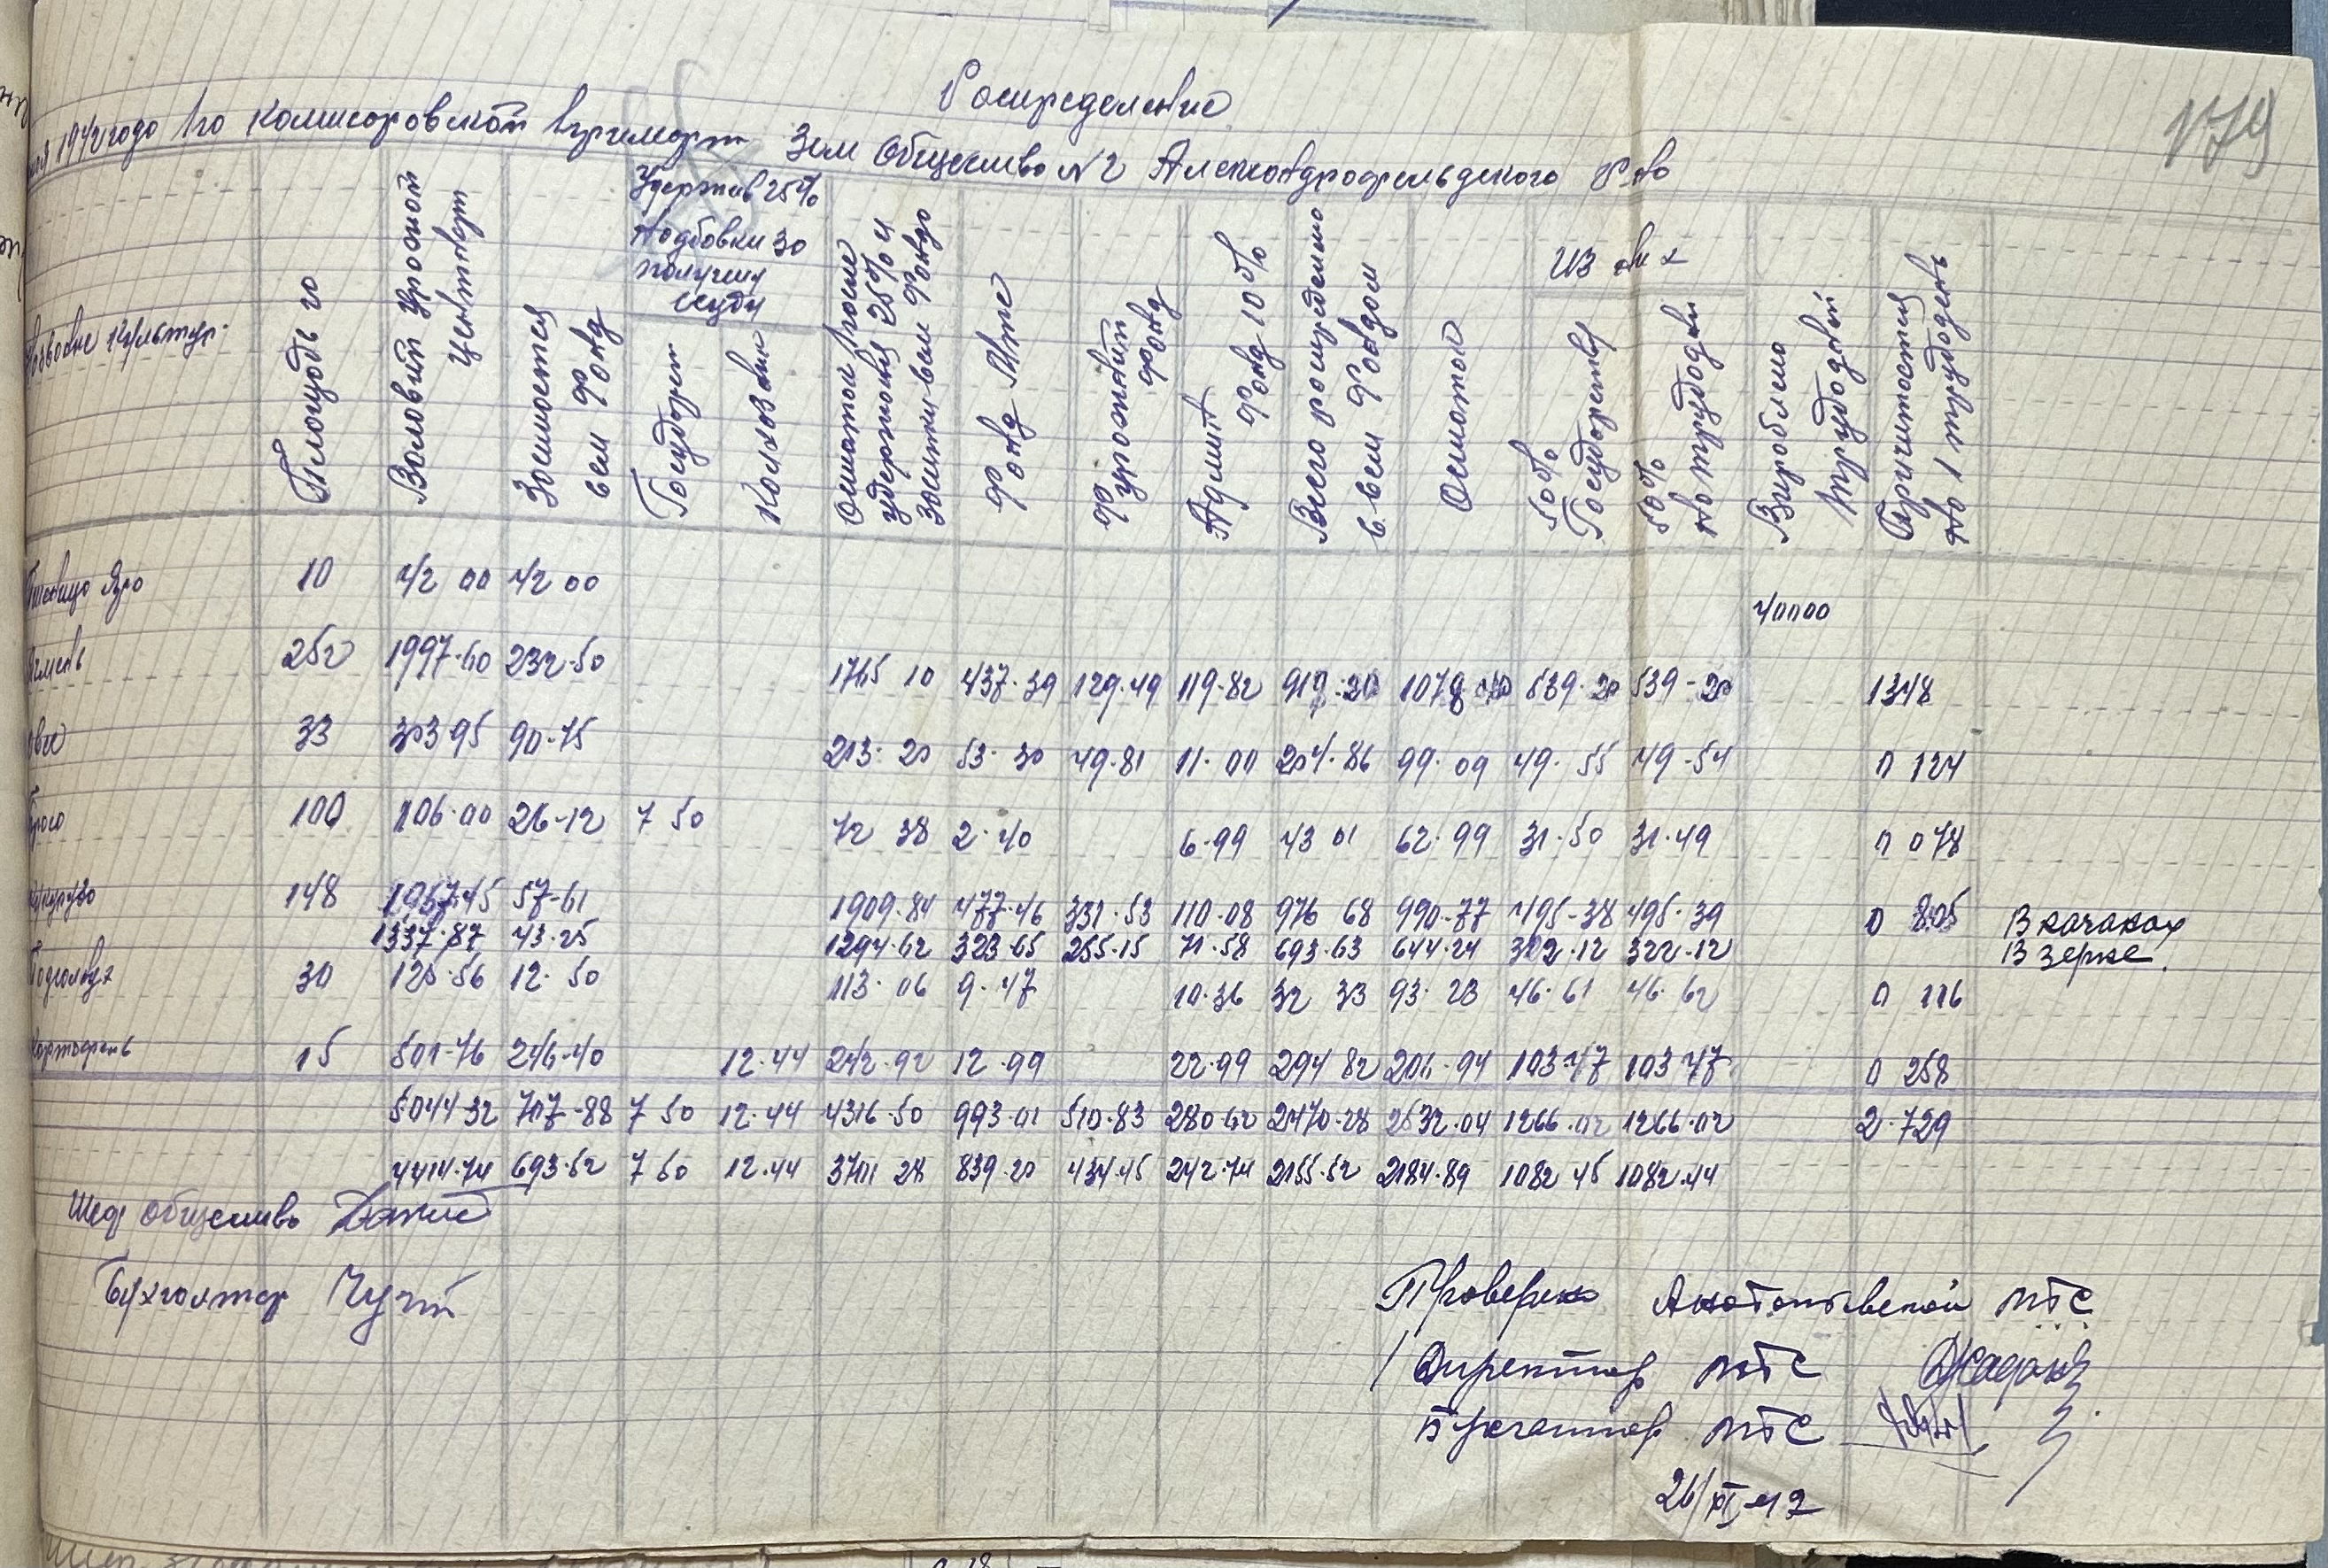 179
Роспределение
1942 годо по Комисоровской Зем Общество №2 Александрофельдского Р-но
Название культур
Площодь га
Воловий урожой центнерт
Зосипоется сем фонд
Удержив 25% Надбовки зо получену ссуду
Государст
Колхозник
Остоток после удержония 25% и зосипки сем фондо
Фонд Мтс
Фурожний фонд
Адмнт фонд 10%
Всего роспределено с сем фондом
Остоток
Из них
50% Государству
50% на трудодни
Вироблено трудодней
Причитоется на 1 трудодень
Пшеницо Яро 10 42 00 42 00
40000
Ячмень 252 1997-60 232-50 1765 10 437-39 129-49 119-82 919-20 1078 40 539-20 539-20 1348
овес 33 303-95 90-75 213-20 53-30 49-81 11-00 204-86 99-09 49-55 49-54 0 124
Просо 100 106-00 26-12 7 50 72 38 2-40 6-99 43 01 62-99 31-50 31-49 0 078
Кукурузо 148 1967-45 57-61 1909-84 477-46 331-53 110-08 976 68 990-77 495-38 495-39 0 805 В качанах
1337-87 43-25 1294-62 323-65 255-15 71-58 693-63 644-24 322-12 322-12 В зерне
Подсолнух 30 125-56 12-50 113-06 9-47 10-36 32 33 93-23 46-61 46-62 0 116
Картофель 15 501-76 246-40 12-44 242-92 12-99 22-99 294 82 206-94 103-47 103-47 0 258
5044 32 707-88 7 50 12-44 4316-50 993-01 510-83 280-62 2470-28 2532-04 1266-02 1266-02 2-729
4414-74 693-52 7 50 12-44 3701 28 839-20 434-45 242-74 2155-52 2184-89 1082 45 1082-44
Шеф общество
Бухголтер
Проверено Анатольевской МТС
Директор МТС
Бухгалтер МТС
26/XI-42